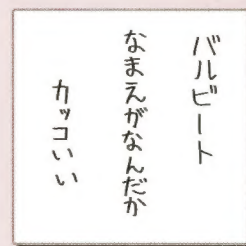 バルビート
なまえがなんだか
カッコいい